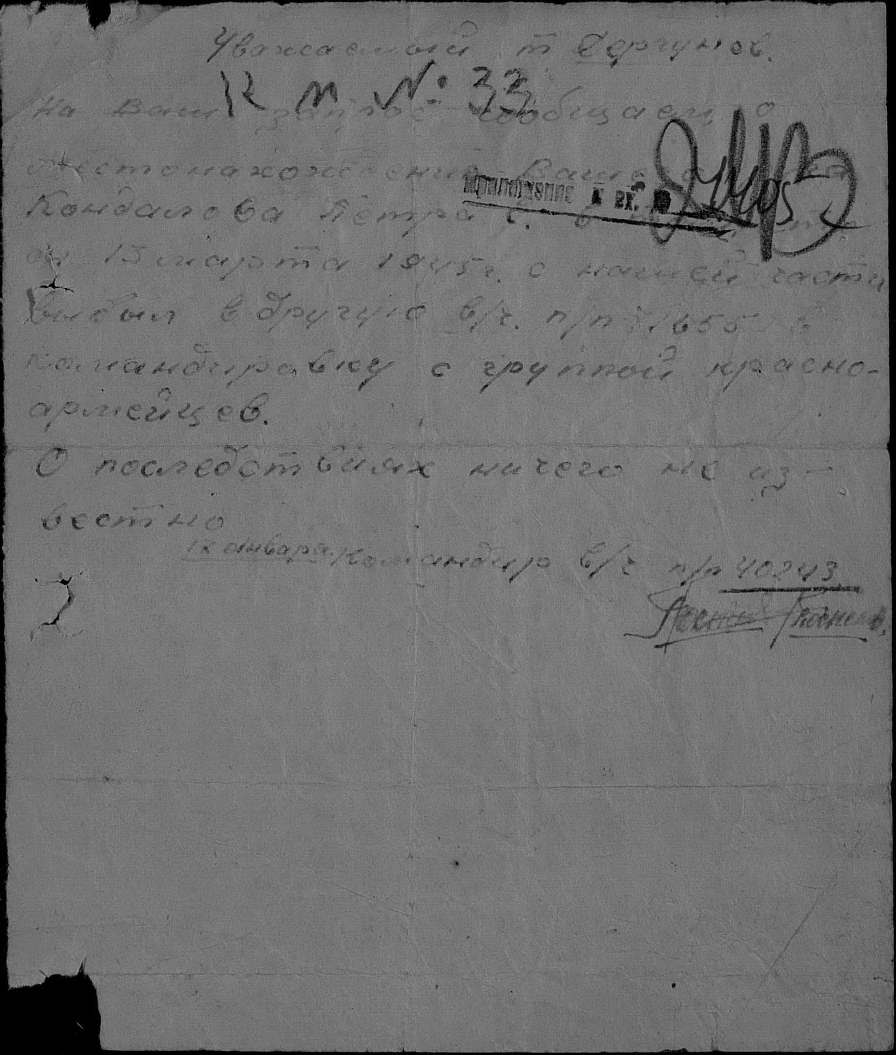 Уважаемый т Дергунов.
К М № 33
На Ваш запрос сообщаем о
местонахождении Вашего
Кондалова Петра С.
он 15 марта 1945 г. с нашей части
выбыл в другую в/ч. п/п 71655 в
командировку с группой красно-
армейцев.
О последствиях ничего не из-
вестно
января Командир в/ч п/п 40243